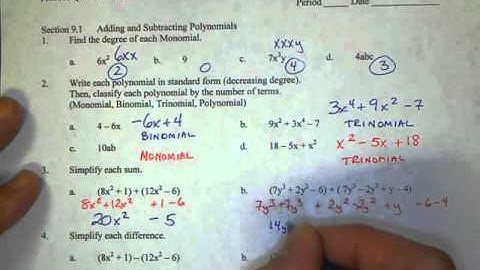 Period Date
Section 9.1 Adding and Subtracting Polynomials
1. Find the degree of each Monomial.
xxxy
a. 6x² 6xx b. 9 c. 7x³y d. 4abc
2 0 4 3
2. Write each polynomial in standard form (decreasing degree).
Then, classify each polynomial by the number of terms.
(Monomial, Binomial, Trinomial, Polynomial)
3x⁴+9x²-7
a. 4 – 6x -6x+4 b. 9x² + 3x⁴ – 7 TRINOMIAL
BINOMIAL
c. 10ab d. 18 – 5x + x² x²-5x+18
MONOMIAL TRINOMIAL
3. Simplify each sum.
a. (8x² + 1) + (12x² – 6) b. (7y³ + 2y² – 6) + (7y³ – 2y² + y – 4)
8x²+12x² +1-6 7y³+7y³ +2y²-2y² +y -6-4
20x² -5 14y
4. Simplify each difference.
a. (8x² + 1) – (12x² – 6) b.